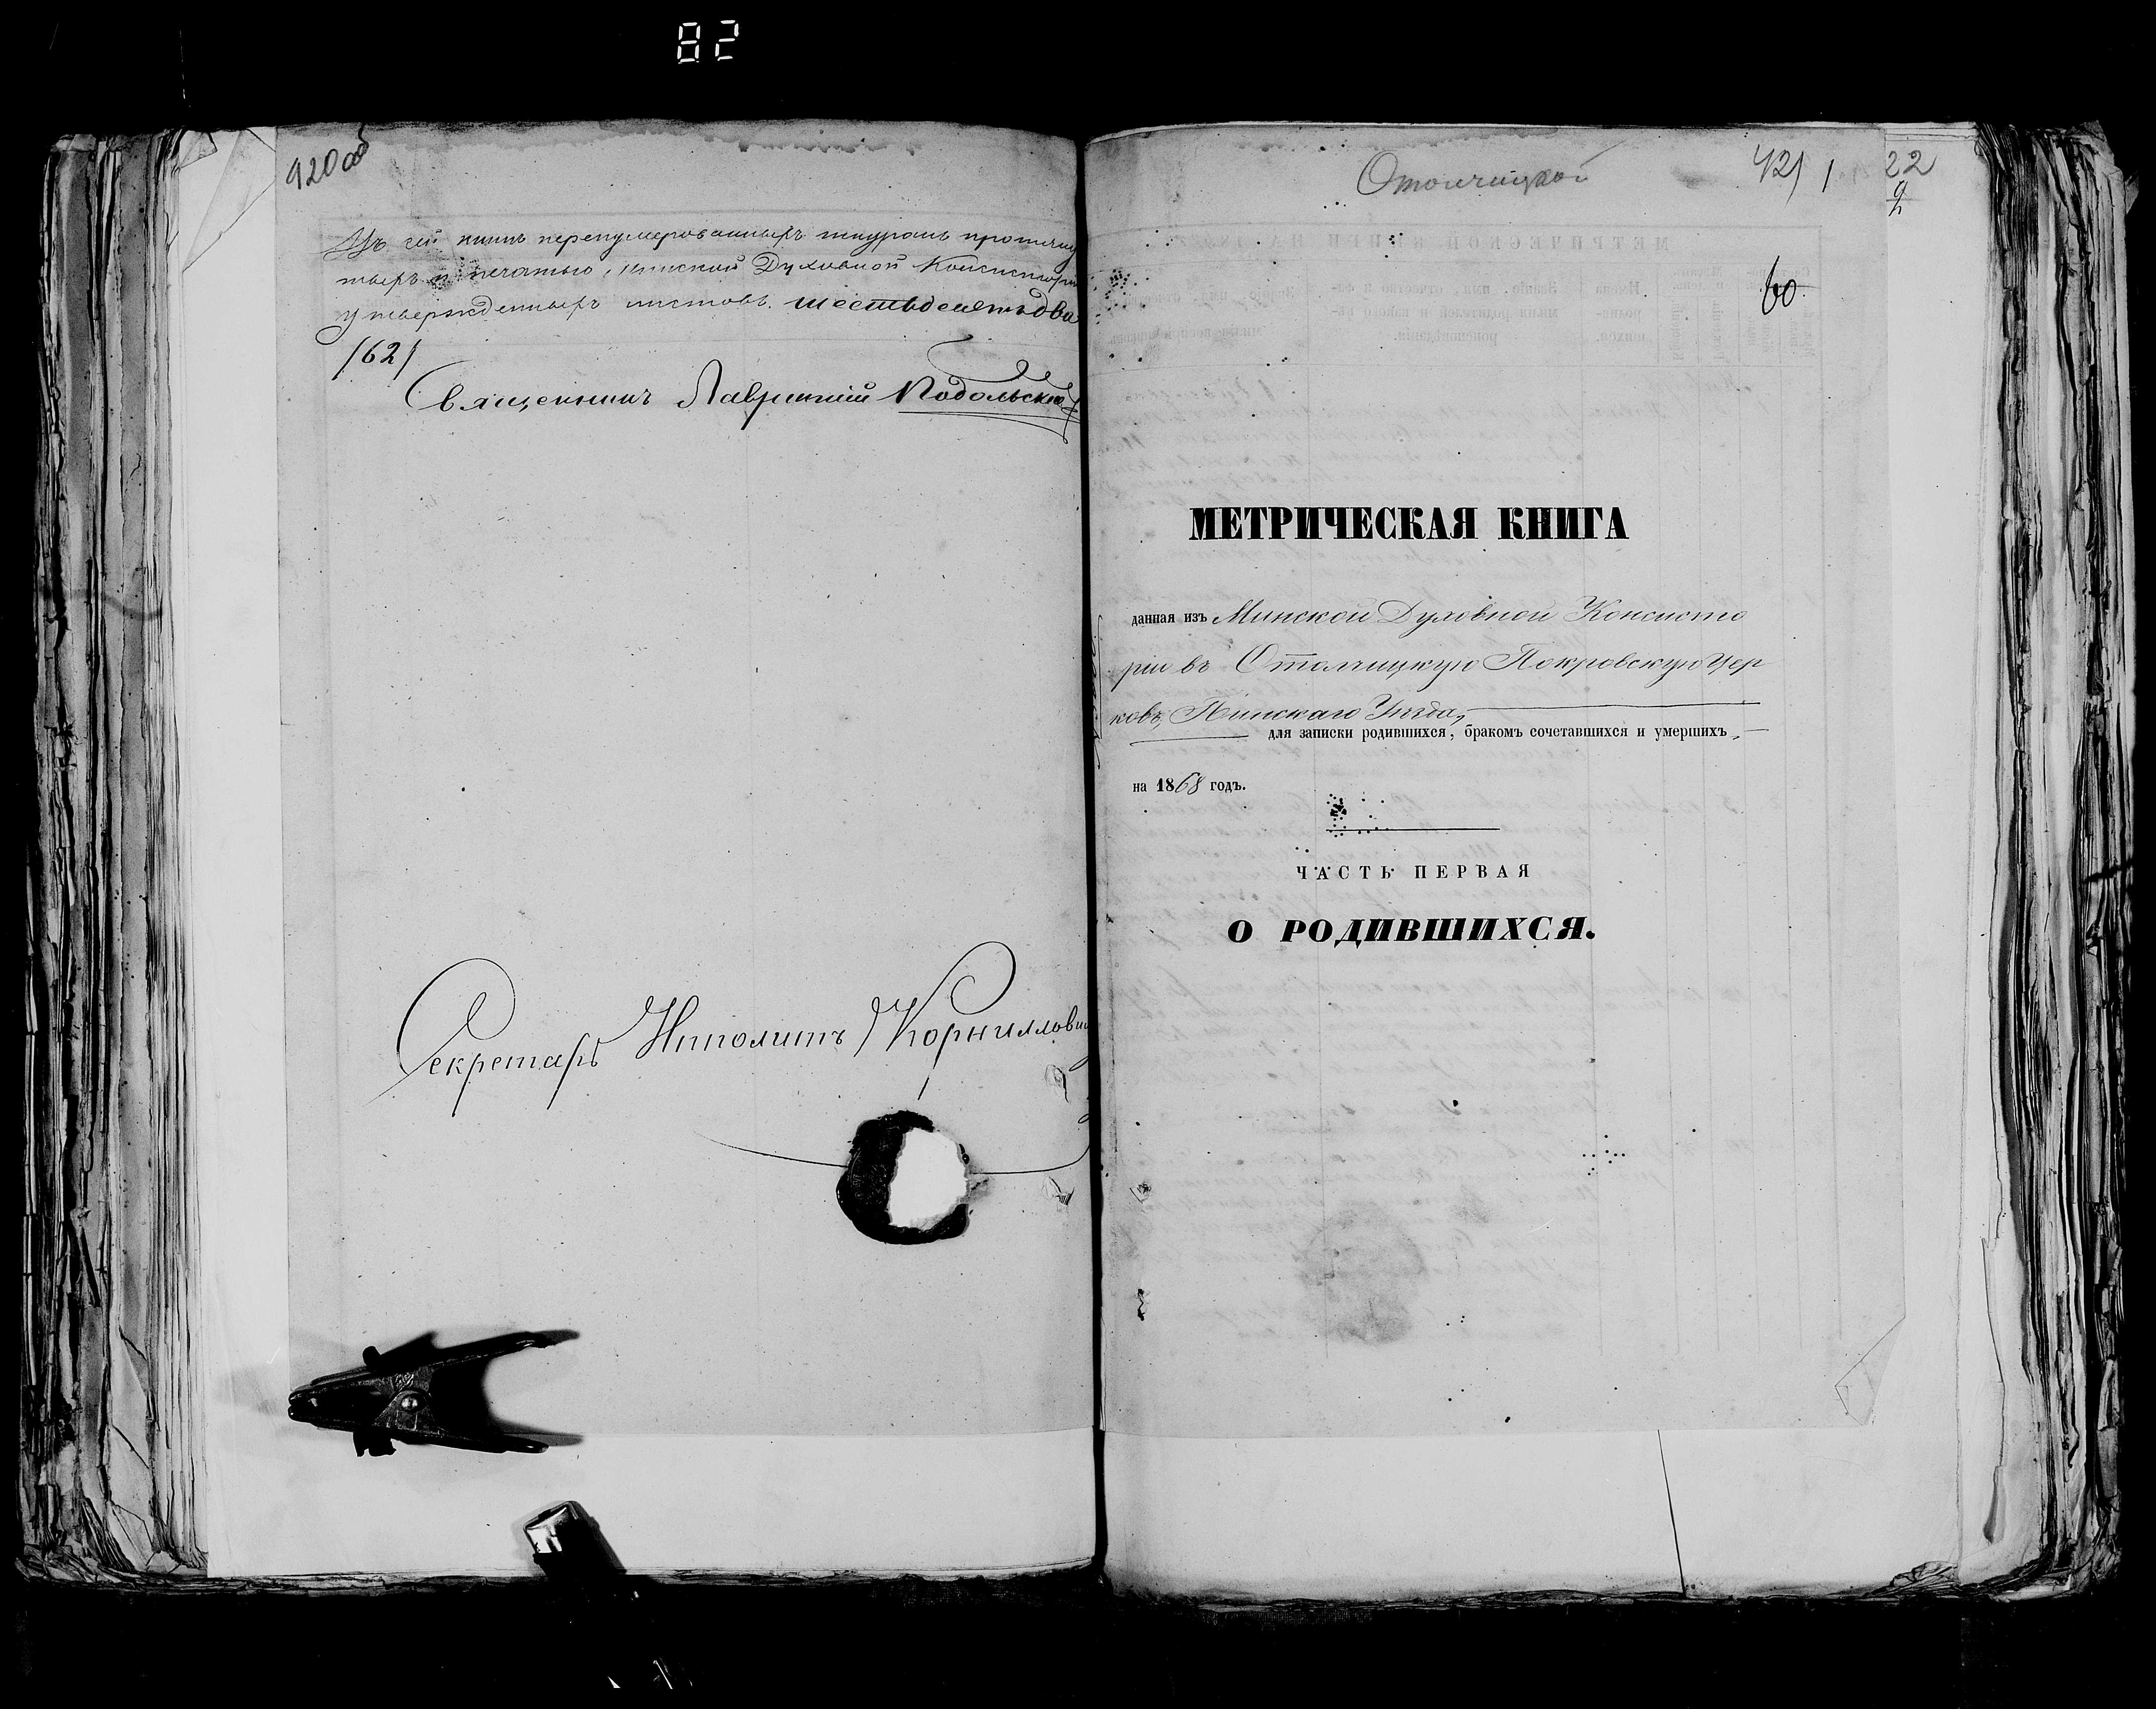 82
920об
Въ сей книгѣ перенумерованныхъ шнуромъ прошну
тыхъ и печатью Минской Духовной Консисторіи
утвержденныхъ листовъ шестьдесятъ два
/62/
Священникъ Лаврентій Подольскій
Секретарь Ипполитъ Корнилови
Отолчицкой
421 1 22
60
МЕТРИЧЕСКАЯ КНИГА
данная изъ Минской Духовной Консисто
ріи въ Отолчицкую Покровскую Цер
ковь, Пинскаго Уѣзда,
для записки родившихся, бракомъ сочетавшихся и умершихъ,
на 1868 годъ.
ЧАСТЬ ПЕРВАЯ
О РОДИВШИХСЯ.